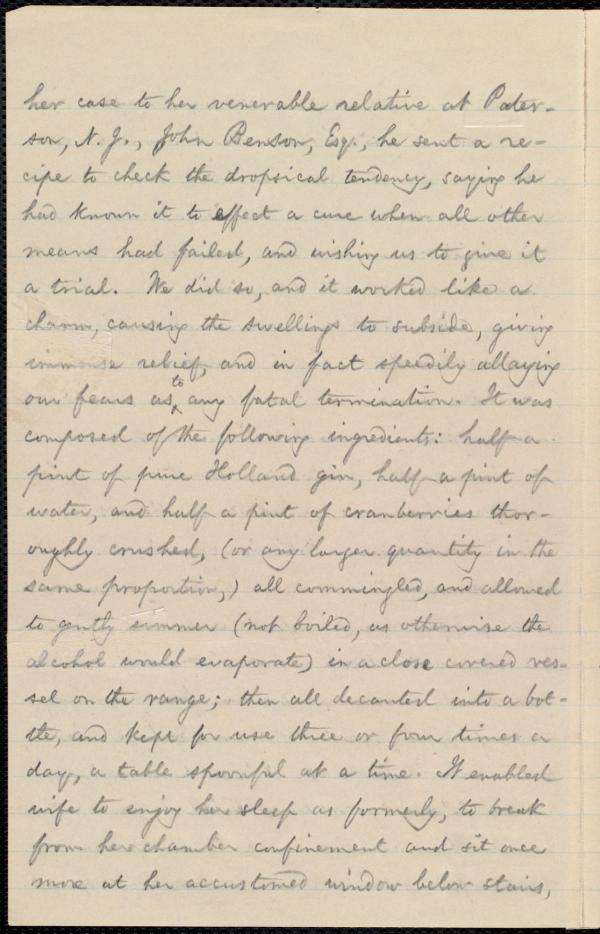 her case to her venerable relative at Pater-
son, N. J., John Benson, Esq., he sent a re-
cipe to check the dropsical tendency, saying he
had known it to effect a cure when all other
means had failed, and wishing us to give it
a trial. We did so, and it worked like a
charm, causing the swellings to subside, giving
immense relief, and in fact speedily allaying
our fears as to any fatal termination. It was
composed of the following ingredients: half a
pint of pure Holland gin, half a pint of
water, and half a pint of cranberries thor-
oughly crushed, (or any larger quantity in the
same proportion,) all commingled, and allowed
to gently simmer (not boiled, as otherwise the
alcohol would evaporate) in a close covered ves-
sel on the range; then all decanted into a bot-
tle, and kept for use three or four times a
day, a table spoonful at a time. It enabled
wife to enjoy her sleep as formerly, to break
from her chamber confinement and sit once
more at her accustomed window below stairs,